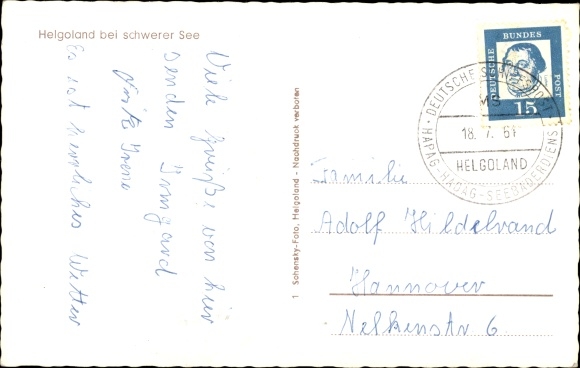 Helgoland bei schwerer See
Viele Grüße von hier
senden Irmgard
Irene
Es ist herrliches Wetter
1 Schensky-Foto, Helgoland - Nachdruck verboten
DEUTSCHE BUNDESPOST
15
DEUTSCHE SCHIFFSPOST
MS
18. 7. 61
HELGOLAND
HAPAG-HADAG-SEEBÄDERDIENST
Familie
Adolf Hildebrand
Hannover
Nelkenstr 6.